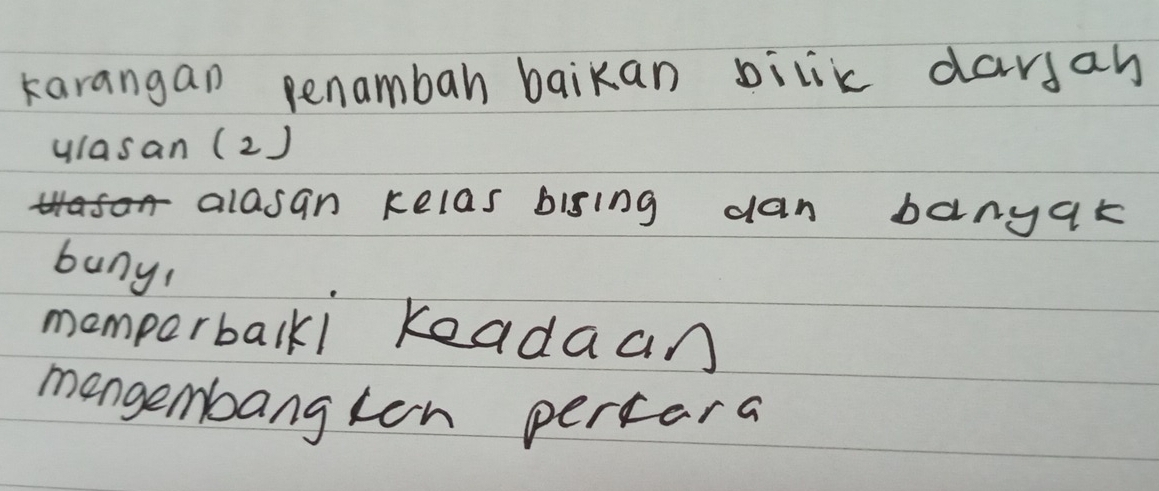 karangan penambah baikan bilik darjah
ulasan (2)
ulasan alasan kelas bising dan banyak
bunyi
memperbaiki keadaan
mengembangkan perkara